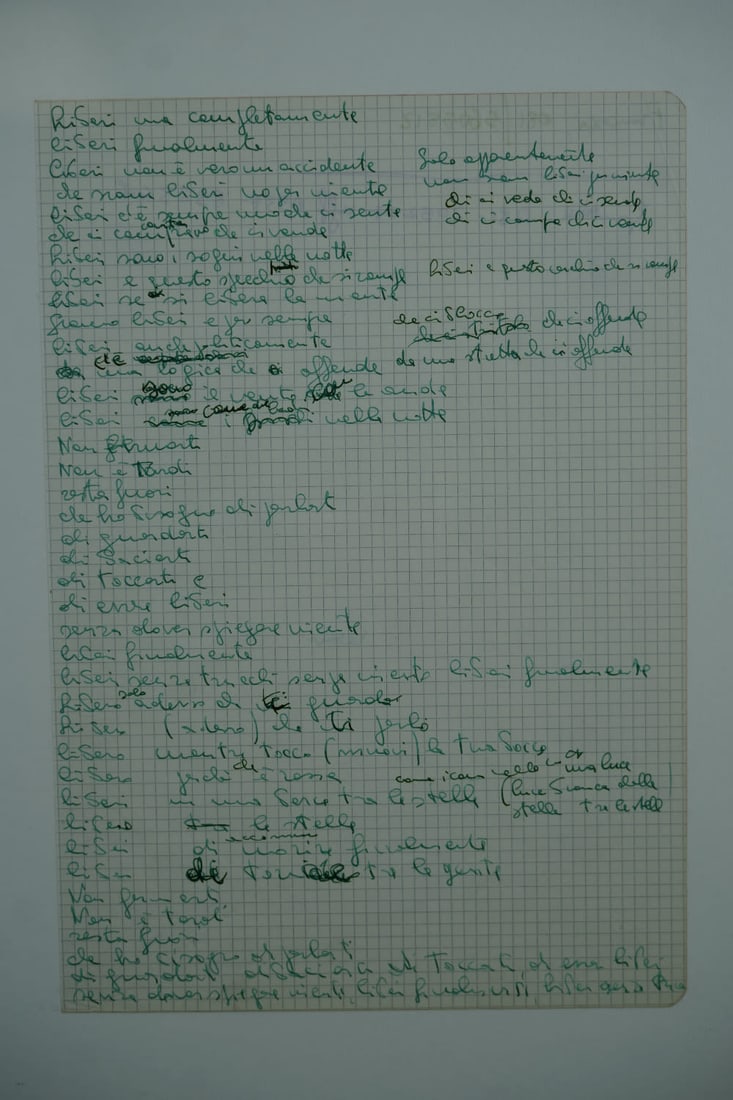 liberi ma completamente
liberi finalmente
liberi non è vero un accidente solo apparentemente
che siam liberi no per niente non siam liberi per niente
liberi c'è sempre uno che ci sente chi ci vede chi ci sente
che ci che ci vende chi ci compra chi ci vende
liberi sono i sogni nella notte
liberi e questo specchio che si rompe liberi e questo cerchio che si rompe
liberi se si libera la mente
siamo liberi e per sempre che ci blocca
liberi anche politicamente che ci offende
che una logica che offende da una stretta che ci offende
liberi sono il vento le onde
liberi come i nella notte
Non fermarti
Non è tardi
resta fuori
che ho bisogno di parlarti
di guardarti
di baciarti
di toccarti e
di essere liberi
senza dover spiegare niente
liberi finalmente
liberi senza trucchi senza niente liberi finalmente
libero solo adesso che ti guardo
libero (adesso) che ti parlo
libero mentre tocco la tua bocca
libero perché è rossa come una luce
liberi in una barca tra le stelle (luce bianca delle
libero tra le stelle stelle tra le stelle
liberi di morire finalmente
liberi di tra la gente
Non fermarti
Non è tardi
resta fuori
che ho bisogno di parlarti
di guardarti di baciarti di toccarti, di essere liberi
senza dover spiegare niente, liberi finalmente, liberi senza